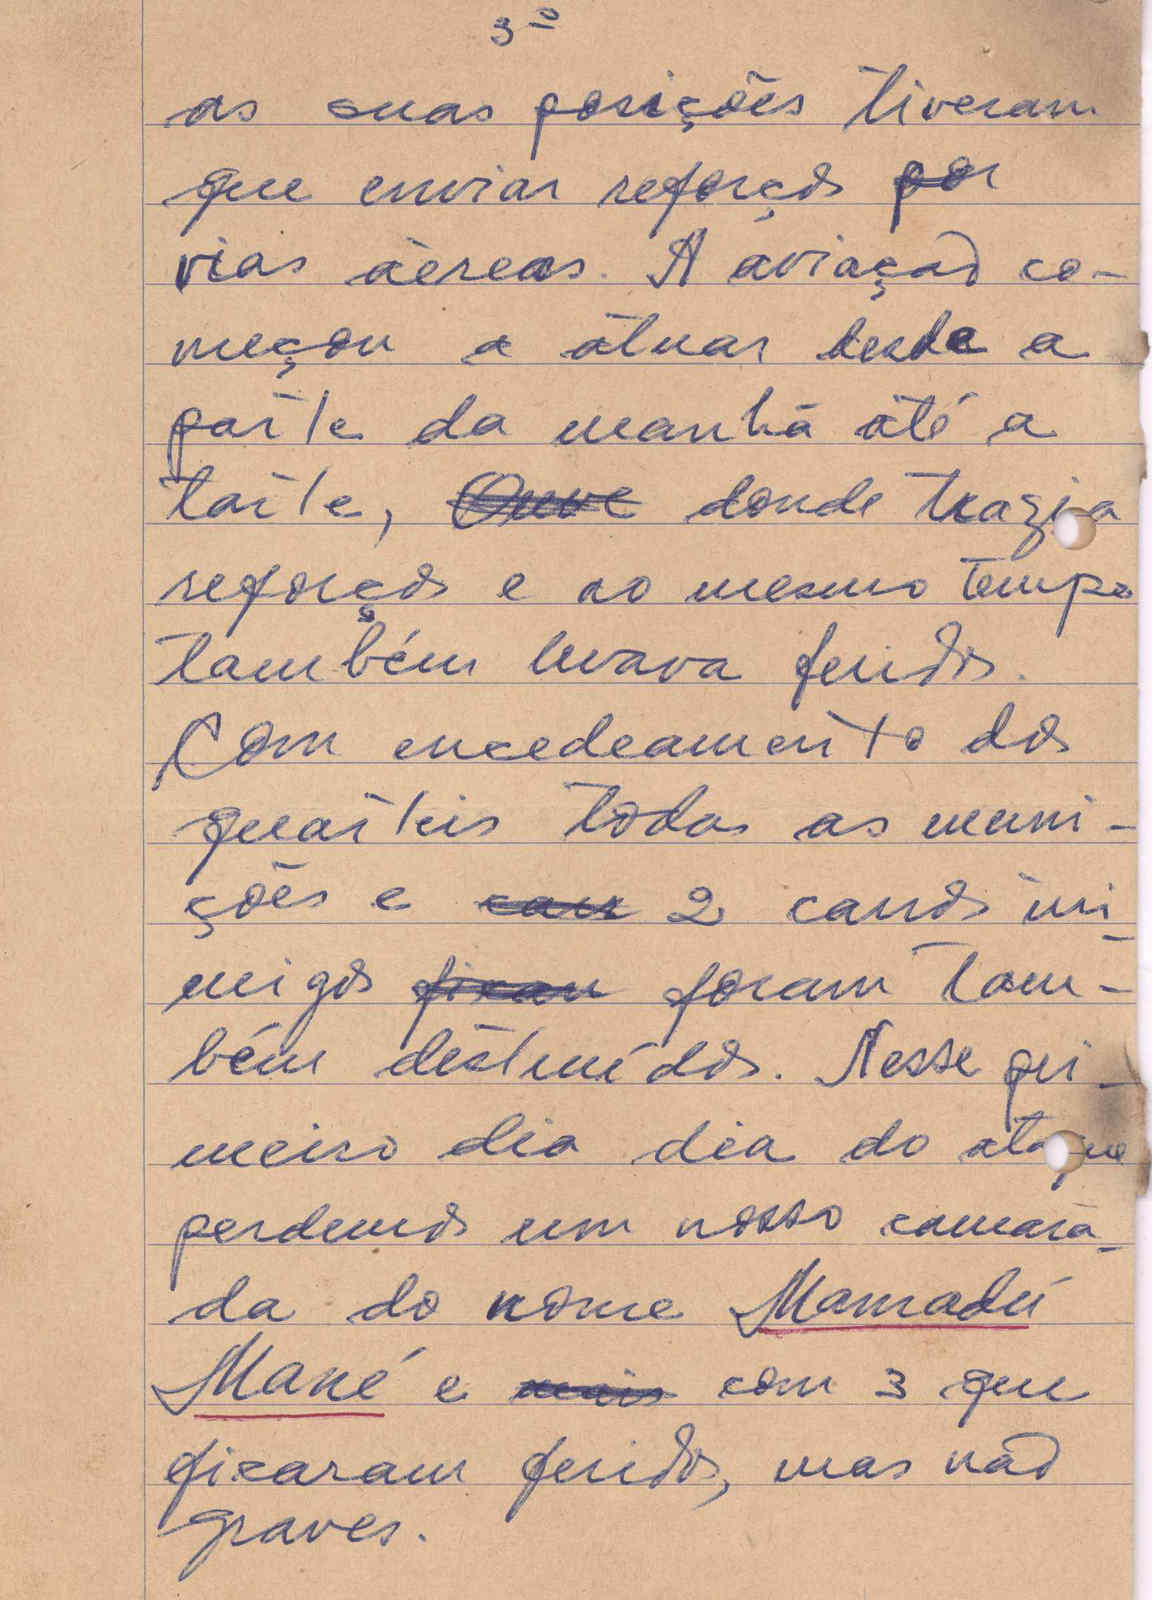 3º
as suas posições tiveram
que enviar reforços por
vias áereas. A aviação co-
meçou a atuar desde a
parte da manhã até a
tarte, Ouve donde trazia
reforços e ao mesmo tempo
também levava feridos.
Com encedeamento dos
quarteis todas as muni-
ções e can 2 canos ini
migos fixan foram tam-
bém destruídos. Nesse pri-
meiro dia dia do ataque
perdemos um nosso camara-
da do nome Mamadú
Mané e mais com 3 que
ficaram feridos, mas não
graves.